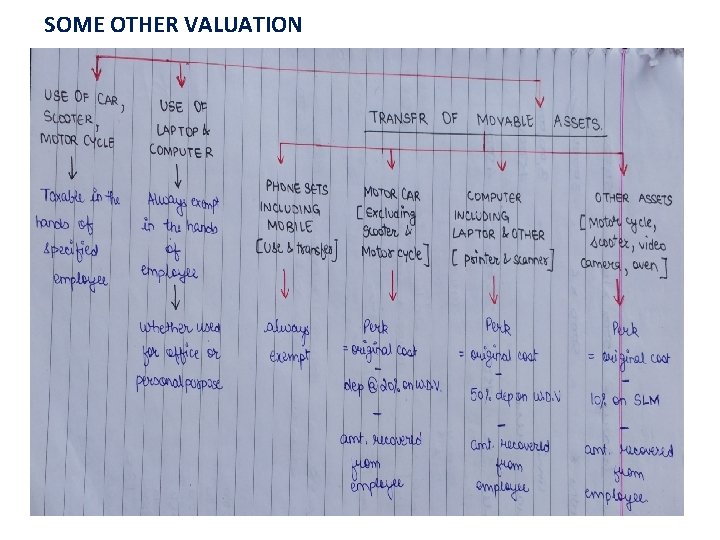 SOME OTHER VALUATION
USE OF CAR,
SCOOTER,
MOTOR CYCLE
Taxable in the
hands of
specified
employee
USE OF
LAPTOP &
COMPUTER
Always exempt
in the hands
of
employee
whether used
for office or
personal purpose
TRANSFR OF MOVABLE ASSETS.
PHONE SETS
INCLUDING
MOBILE
[Use & transfer]
always
exempt
MOTOR CAR
[Excluding
scooter &
Motor cycle]
Perk
= original cost
-
dep @ 20% on W.D.V.
-
amt. recovered
from
employee
COMPUTER
INCLUDING
LAPTOP & OTHER
[printer & scanner]
Perk
= original cost
-
50% dep on W.D.V
-
amt. recovered
from
employee
OTHER ASSETS
[Motor cycle,
scooter, video
camera, oven]
Perk
= original cost
-
10% on SLM
-
amt. recovered
from
employee